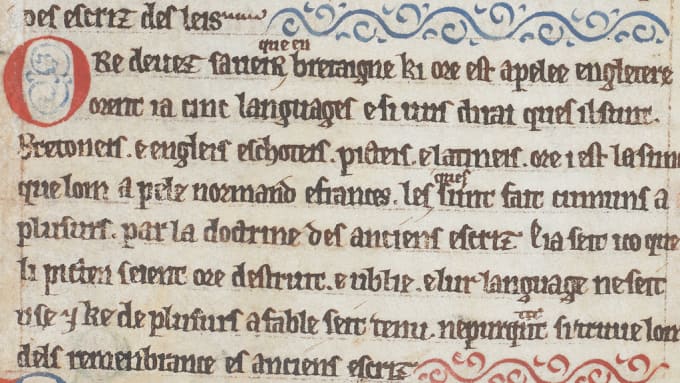 des escriz des leis
que en
ORe deuez saueir bretaigne ki ore est apelee engletere
orent ia cinc languages e si uus dirai ques il sunt.
Bretoneis. e engleis eschoteis. picteis. e latineis. ore i est la sum
ques
que lom apele normand e franceis. les sunt fait cumuns a
plusurs. par la doctrine des anciens escriz Ja seit co que
li picteis seient ore destruit. e ublie. e lur language ne seit
use y ke de plusurs a fable seit tenu. nepurquant si truue lom
dels remenbrance es anciens escriz